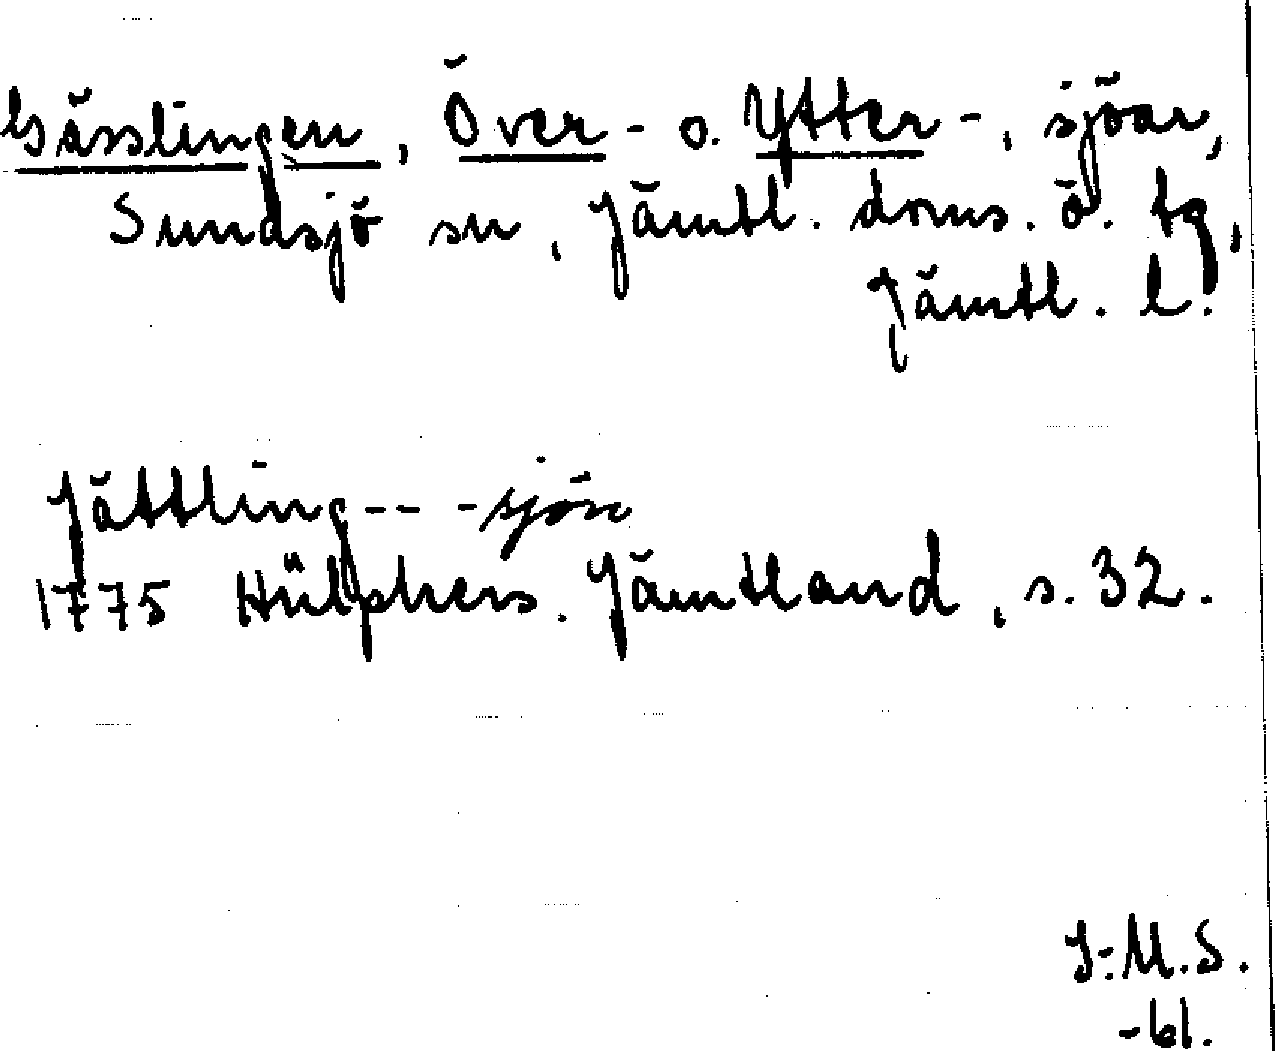 Gässlingen, Över- o. Ytter-, sjöar,
Sundsjö sn, Jämtl. doms. ö. tg,
Jämtl. l.
Jättling-- -sjön
1775 Hülphers. Jämtland, s. 32.
I-M.S.
-61.